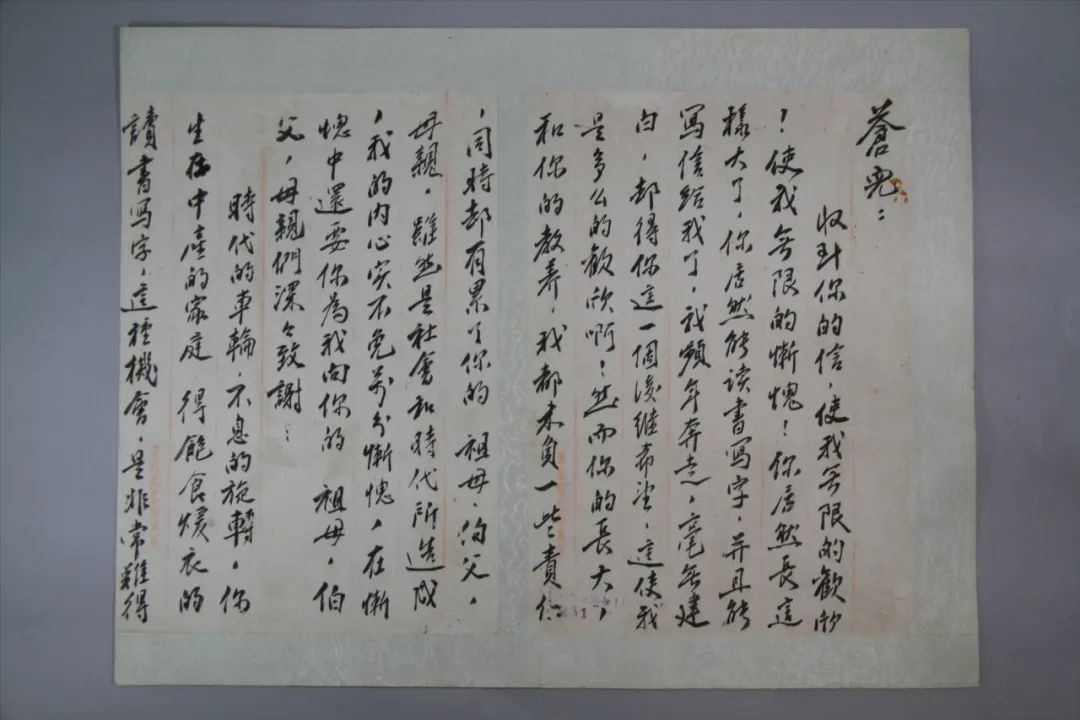 蒼兒：
收到你的信，使我無限的歡欣
！使我無限的慚愧！你居然長這
樣大了，你居然能读書寫字，并且能
寫信給我了，我頻年奔走，毫無建
白，却得你這一個後继希望，這使我
是多么的歡欣啊！然而你的長大，
和你的教养，我都未負一些責任
，同時却有累了你的 祖母、伯父，
母親，雖然是社會和時代所造成
，我的内心实不免万分慚愧，在慚
愧中還要你為我向你的 祖母，伯
父，母親們深々致謝：
時代的車輪，不息的旋轉，你
生存中產的家庭 得飽食煖衣的
讀書写字，這種機會，是非常難得